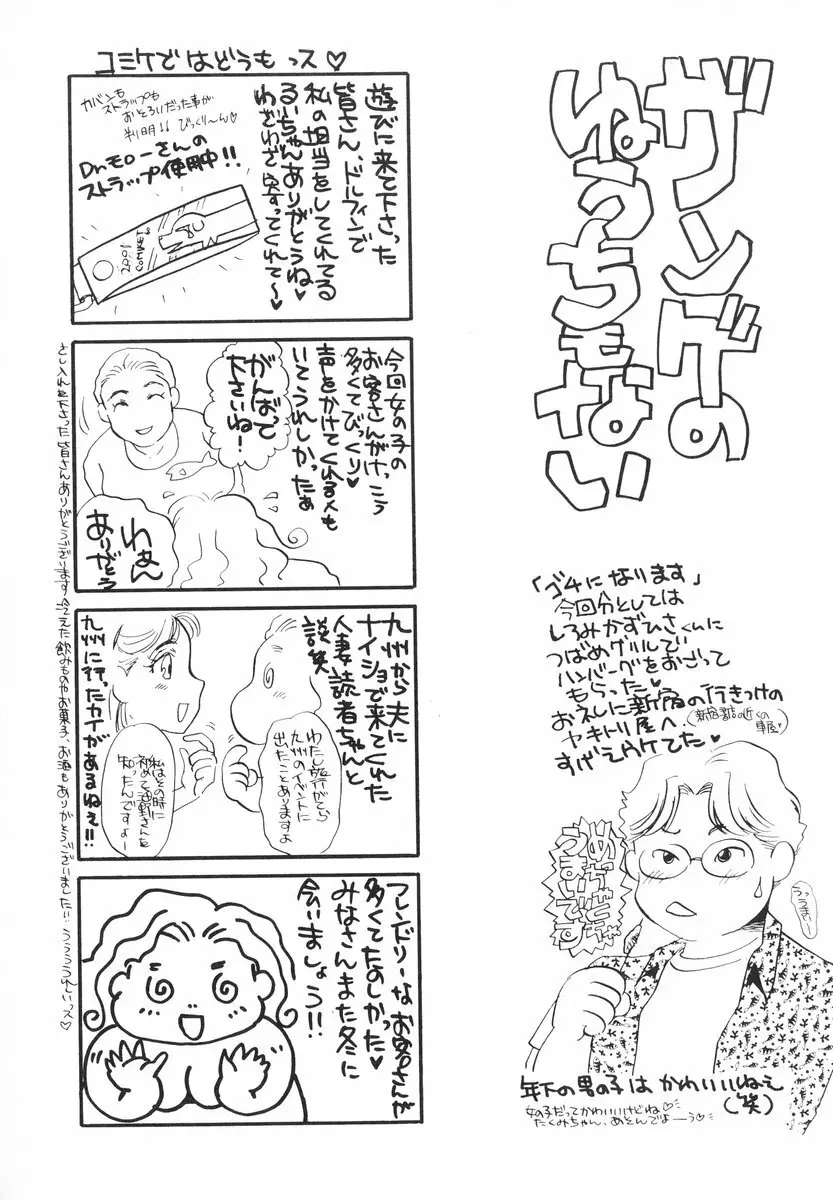 ガンデの
ぬうちもない
「ゴチになります」
今回分としては
しろみかずひさくんに
つばめグリルで
ハンバーグをおごって
もらった♥
おネしに新宿の行きつけの
ヤキトリ屋へ
(新宿書店の近くの
車屋)
すげえウケてた♥
めちゃめちゃ
うまいです
うっうまいー
年下の男の子は かわいいねぇ
(笑)
女の子だってかわいいけどね♡
たくみちゃん、あそんでよーう♡
コミケで はどうも っス♡
遊びに来て下さった
皆さん、ドルフィンで
私の担当をしてくれてる
るいちゃんありがとうね♥
わざわざ寄ってくれて〜♥
カバンも
ストラップも
おとろいだった事が
判明!! びっくり〜ん♡
Dr.モローさんの
ストラップ使用中!!
2001
COMIKET
今回女の子の
お客さんがけっこう
多くてびっくり♥
声をかけてくれる人も
いてうれしかったぁ
がんばって
下さいね!
わぁん
ありがとう
九州から夫に
ナイショで来てくれた
人妻読者ちゃんと
談笑
わたし旅行がてら
九州のイベントに
出たことありますよ
私はその時に
初めて
知ったんですよー
九州に行ったカイがあるねぇ!!
フレンドリーなお客さんが
多くてたのしかった♥
みなさんまた冬に
会いましょう!!
さし入れを下さった皆さんありがとうございます 冷えた飲みものやお菓子、お酒もありがとうございましたい うううれしいっス♡